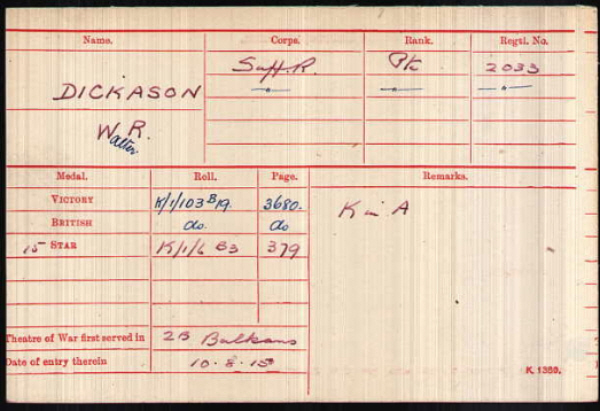 Name. Corps. Rank. Regtl. No.
DICKASON Suff. R. Pte 2033
W. R. —"— —"— —"—
alter
Medal. Roll. Page. Remarks.
VICTORY K/1/103 B19 3680. K in A
BRITISH do. do
15 STAR K/1/6 B3 379
Theatre of War first served in 2B Balkans
Date of entry therein 10.8.15
K 1380.